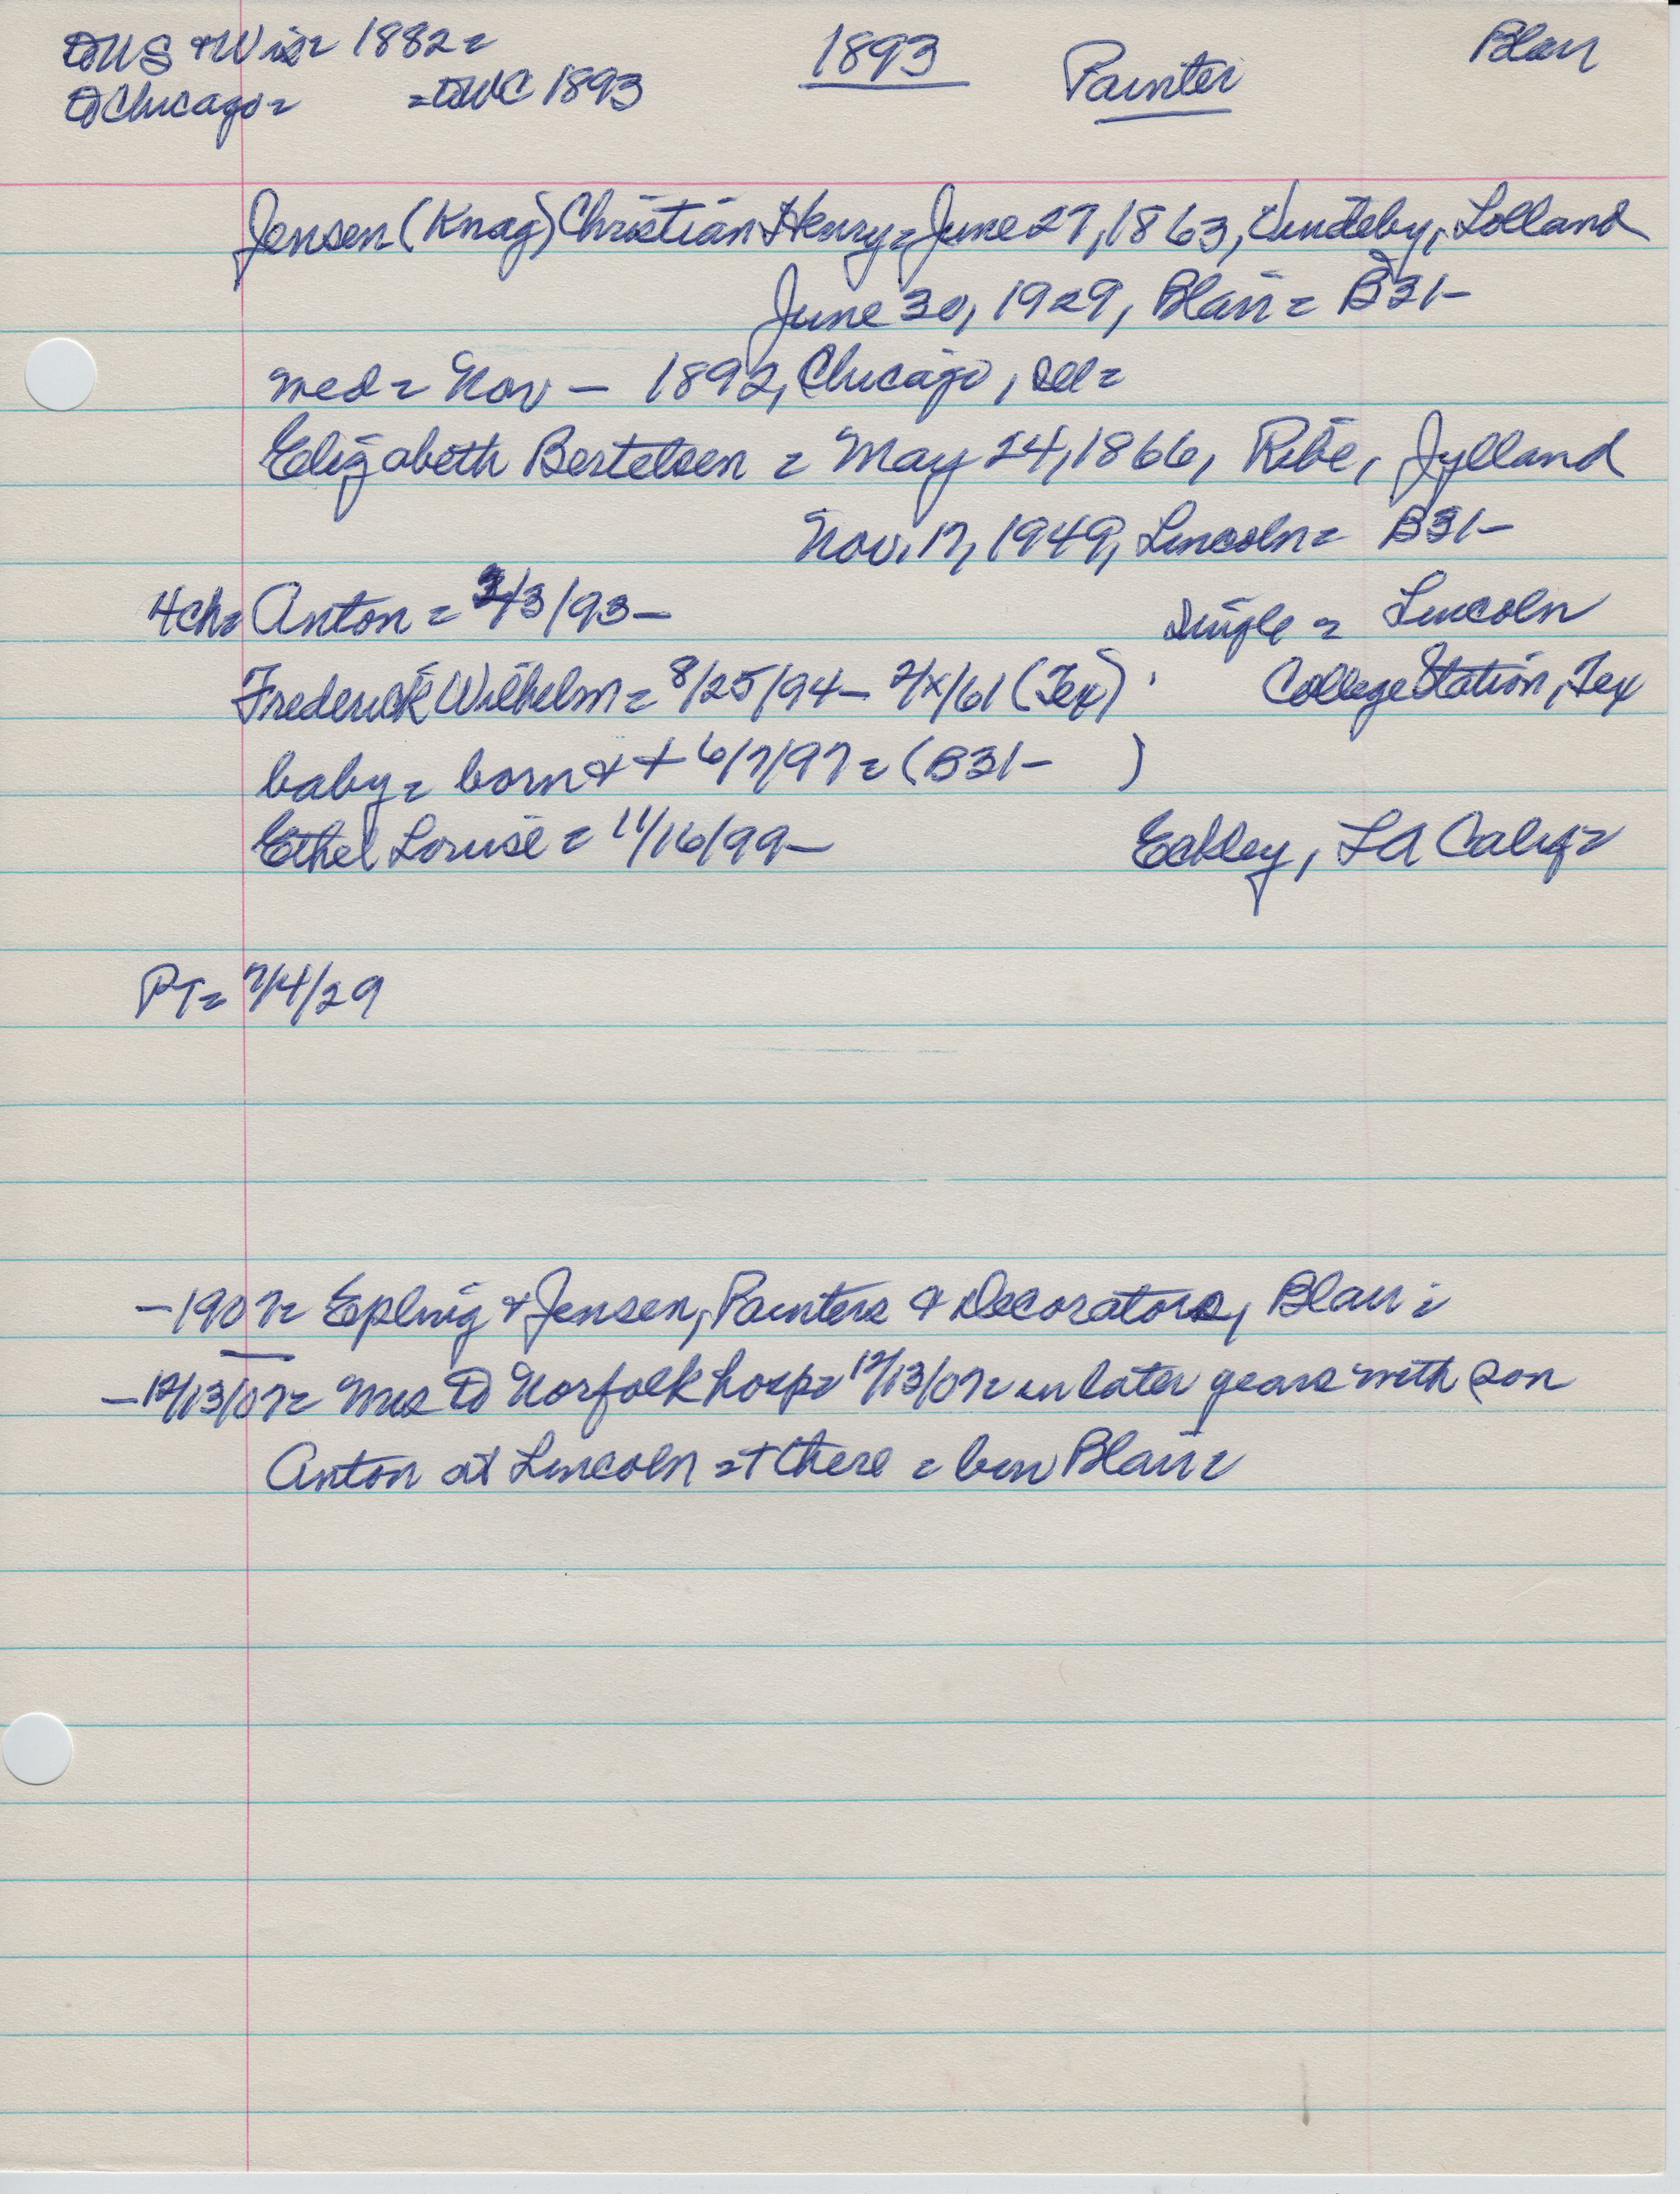 to US & Wis = 1882 =
1893
Painter
Blair
to Chicago = = to WC 1893
Jensen (Knag) Christian Henry = June 27, 1863, Vindeby, Lolland
June 30, 1929, Blair = B31-
med = Nov - 1892, Chicago, Ill =
Elizabeth Bertelsen = May 24, 1866, Ribe, Jylland
Nov. 17, 1949, Lincoln = B31-
4ch = Anton = /3/93- single = Lincoln
Frederick Wilhelm = 8/25/94- 2/x/61 (Tex) College Station, Tex
baby = born & + 6/7/97 = (B31- )
Ethel Louise = 11/16/99- Eckley, LA Calif =
PT = 7/4/29
-1907 = Epling & Jensen, Painters & Decorators, Blair =
-12/13/07 = Mrs to Norfolk hosp = 12/13/07 = in later years with son
Anton at Lincoln = + there = bur Blair =